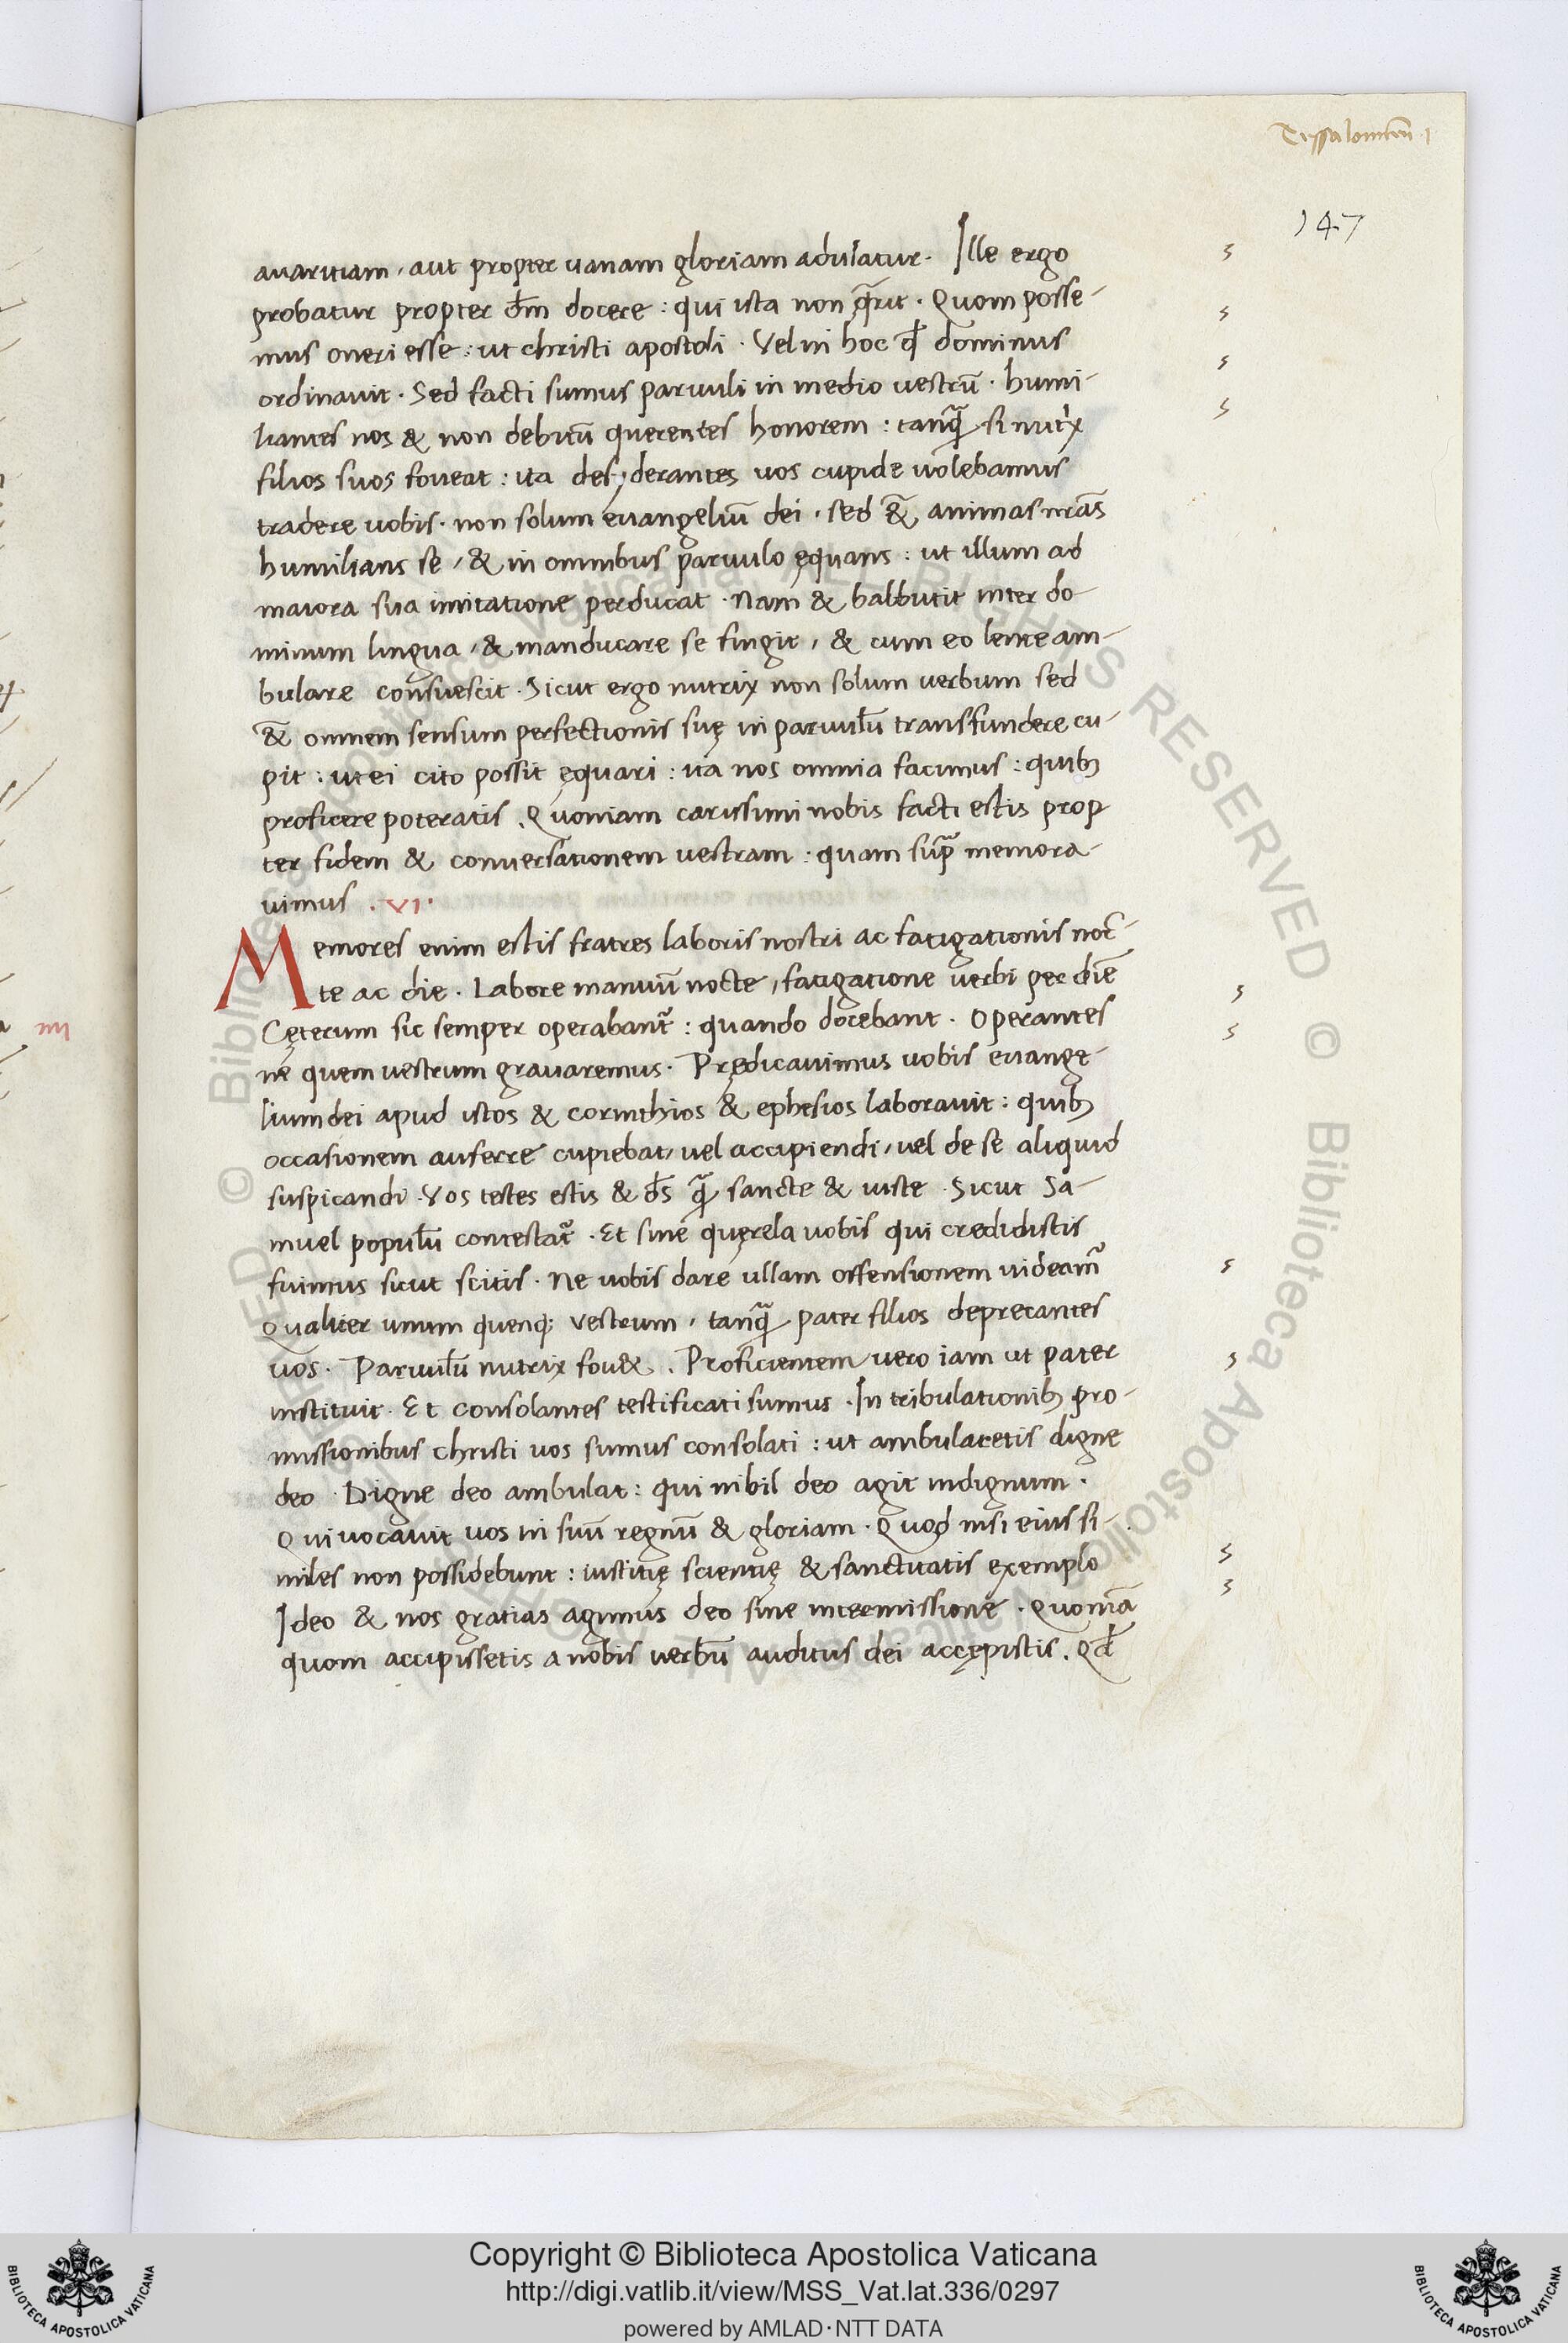 Tessalonicen̄ ·1
147
avaritiam, aut propter vanam gloriam adulatur. Ille ergo
probatur propter dm̄ docere : qui ista non q̄rit . Quom posse-
mus oneri esse : ut christi apostoli . Vel in hoc qđ dominus
ordinavit . Sed facti sumus parvuli in medio vestrū . humi-
liantes nos & non debitū querentes honorem : tanq̄ si nutrix
filios suos foveat : ita desyderantes vos cupide volebamus
tradere vobis . non solum evangeliū dei . sed &̄ animas nr̄as
humilians se , & in omnibus parvulo ęquans : ut illum ad
maiora sua imitatione perducat . Nam & balbutit inter do-
minum lingua , & manducare se fingit , & cum eo lente am-
bulare consuescit . Sicut ergo nutrix non solum verbum sed
&̄ omnem sensum perfectionis suę in parvulū transfundere cu-
pit : ut ei cito possit ęquari : ita nos omnia facimus : quibꝫ
proficere poteratis . Quoniam carissimi nobis facti estis prop
ter fidem & conversationem vestram : quam sup̄ memora-
vimus . VI .
Memores enim estis fratres laboris nostri ac fatigationis noc-
te ac die . Labore manuū nocte , fatigatione verbi per diē
Cęterum sic semper operabant᷑ : quando docebant . Operantes
ne quem vestrum gravaremus . Prędicavimus vobis evange-
lium dei apud istos & corinthios & ephesios laboravit : quibꝫ
occasionem auferre cupiebat , vel accipiendi , vel de se aliquid
suspicandi . Vos testes estis & ds̄ q̄ sancte & iuste . Sicut Sa-
muel populū contestat᷑ . Et sine quęrela vobis qui credidistis
fuimus sicut scitis . Ne vobis dare ullam offensionem videam᷑
Qualiter unum quenqꝫ vestrum , tanq̄ pater filios deprecantes
vos . Parvulū nutrix fov& . Proficientem vero iam ut pater
instituit . Et consolantes testificati sumus . In tribulationibꝫ pro-
missionibus christi vos sumus consolati : ut ambularetis digne
deo . Digne deo ambulat : qui nihil deo agit indignum .
Qui vocavit vos in suū regnū & gloriam . Quod nisi eius si-
miles non possidebunt : iustitię scientię & sanctitatis exemplo
Ideo & nos gratias agimus deo sine intermissione . Quoniā
quom accipissetis a nobis verbū auditus dei accępistis . Qđ
IIII
© Biblioteca Apostolica Vaticana ALL RIGHTS RESERVED
Copyright © Biblioteca Apostolica Vaticana
http://digi.vatlib.it/view/MSS_Vat.lat.336/0297
powered by AMLAD·NTT DATA
BIBLIOTECA APOSTOLICA VATICANA
BIBLIOTECA APOSTOLICA VATICANA